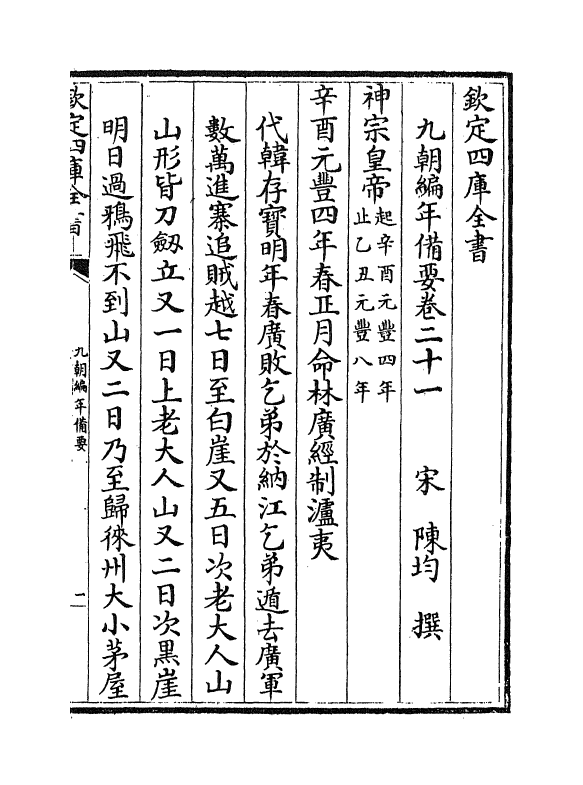 欽定四庫全書
九朝編年備要卷二十一　宋　陳均　撰
神宗皇帝起辛酉元豐四年
止乙丑元豐八年
辛酉元豐四年春正月命林廣經制瀘夷
代韓存寳明年春廣敗乞弟於納江乞弟遁去廣軍
數萬進寨追賊越七日至白崖又五日次老大人山
山形皆刀劒立又一日上老大人山又二日次黒崖
明日過鴉飛不到山又二日乃至歸徠州大小茅屋
欽定四庫全書
九朝編年備要